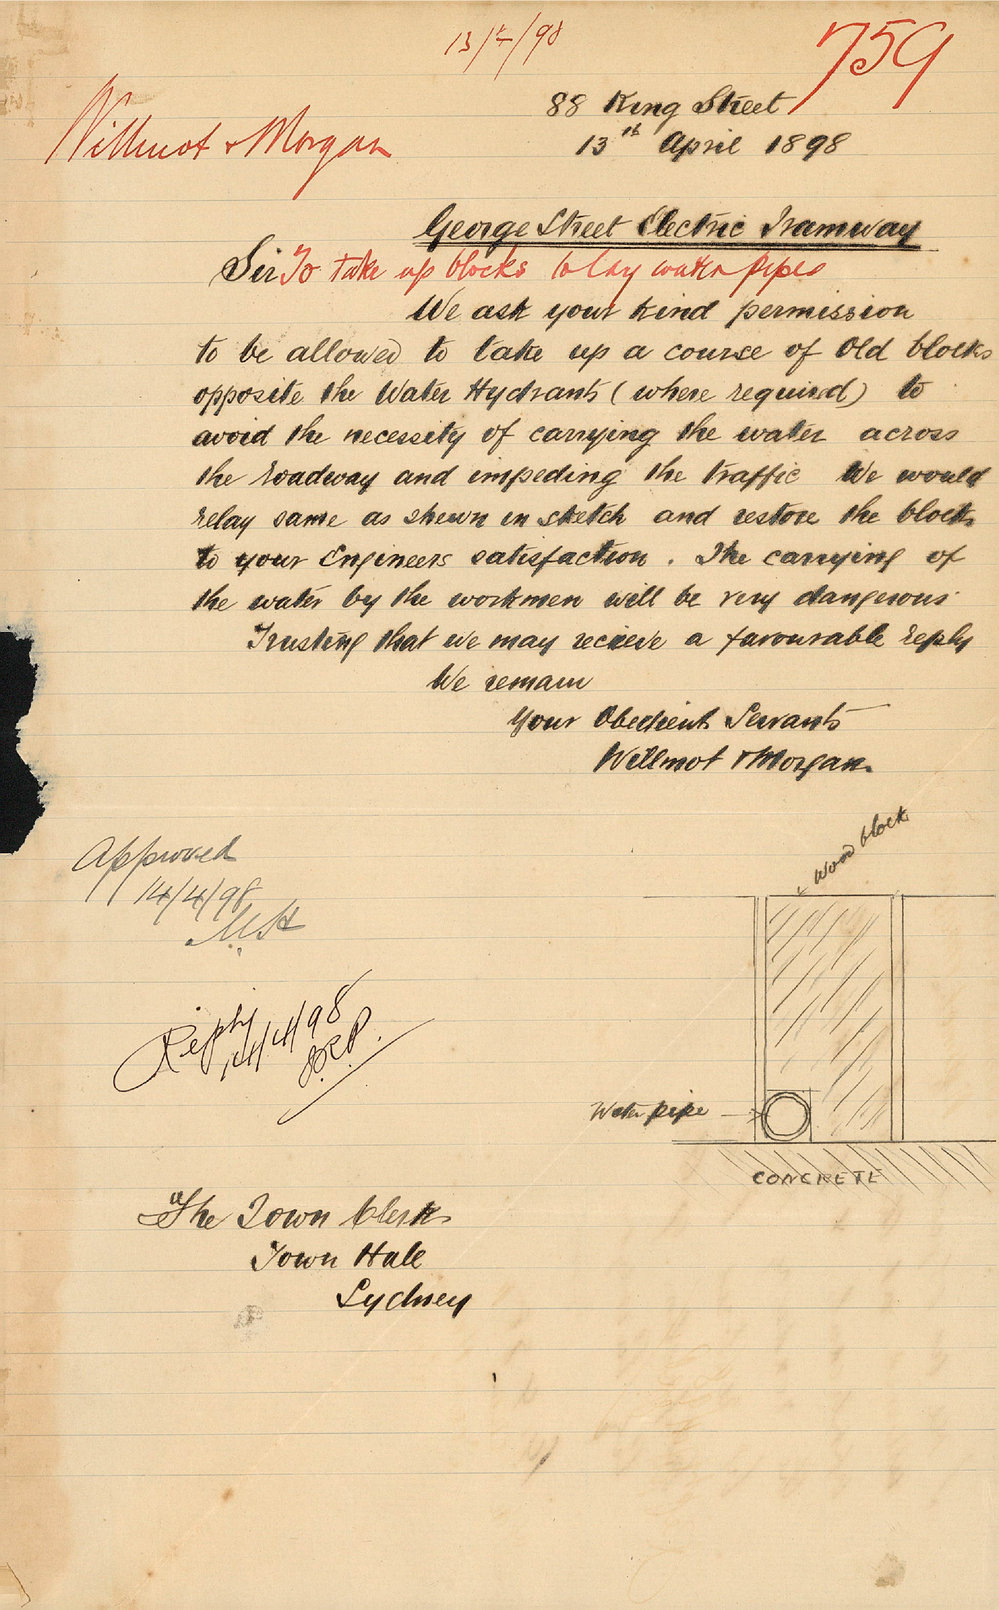 13/4/98
759
Willmot & Morgan
88 King Street
13th April 1898
George Street Electric Tramway
Sir To take up blocks to lay water pipes
We ask your kind permission
to be allowed to take up a course of Old blocks
opposite the Water Hydrants (where required) to
avoid the necessity of carrying the water across
the roadway and impeding the traffic We would
relay same as shewn in sketch and restore the blocks
to your Engineers satisfaction. The carrying of
the water by the workmen will be very dangerous
Trusting that we may recieve a favourable reply
We remain
Your Obedient Servants
Willmot & Morgan.
Wood block
Approved
14/4/98
Reply
14/4/98
Water pipe
CONCRETE
The Town Clerk
Town Hall
Sydney